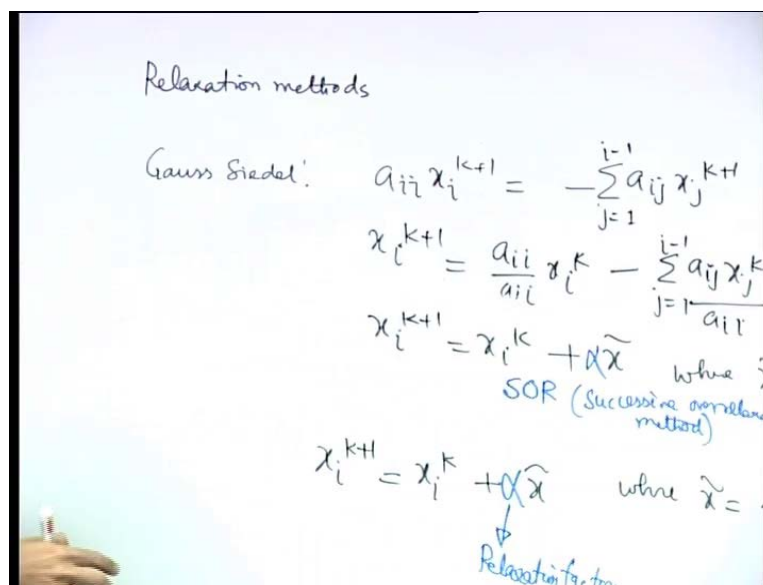 Relaxation methods
Gauss Siedel: a_ii x_i^{k+1} = - ∑_{j=1}^{i-1} a_ij x_j^{k+1}
x_i^{k+1} = a_ii/a_ii x_i^k - ∑_{j=1}^{i-1} a_ij x_j^k / a_ii
x_i^{k+1} = x_i^k + α x̃ where
SOR (Successive overrelaxa
method)
x_i^{k+1} = x_i^k + α x̃ where x̃ =
Relaxation factor